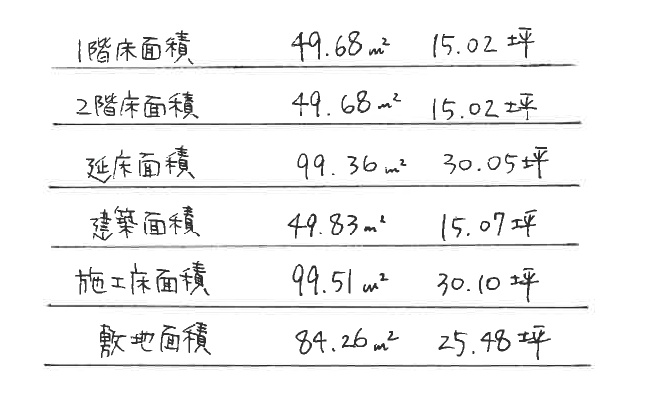 1階床面積 49.68m² 15.02坪
2階床面積 49.68m² 15.02坪
延床面積 99.36m² 30.05坪
建築面積 49.83m² 15.07坪
施工床面積 99.51m² 30.10坪
敷地面積 84.26m² 25.48坪